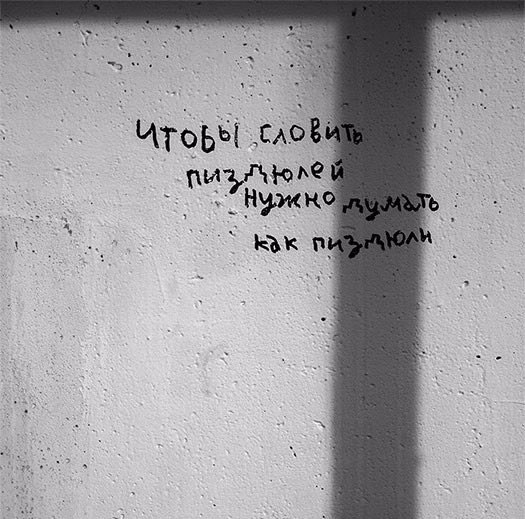 Чтобы словить
пиздюлей
нужно думать
как пиздюли